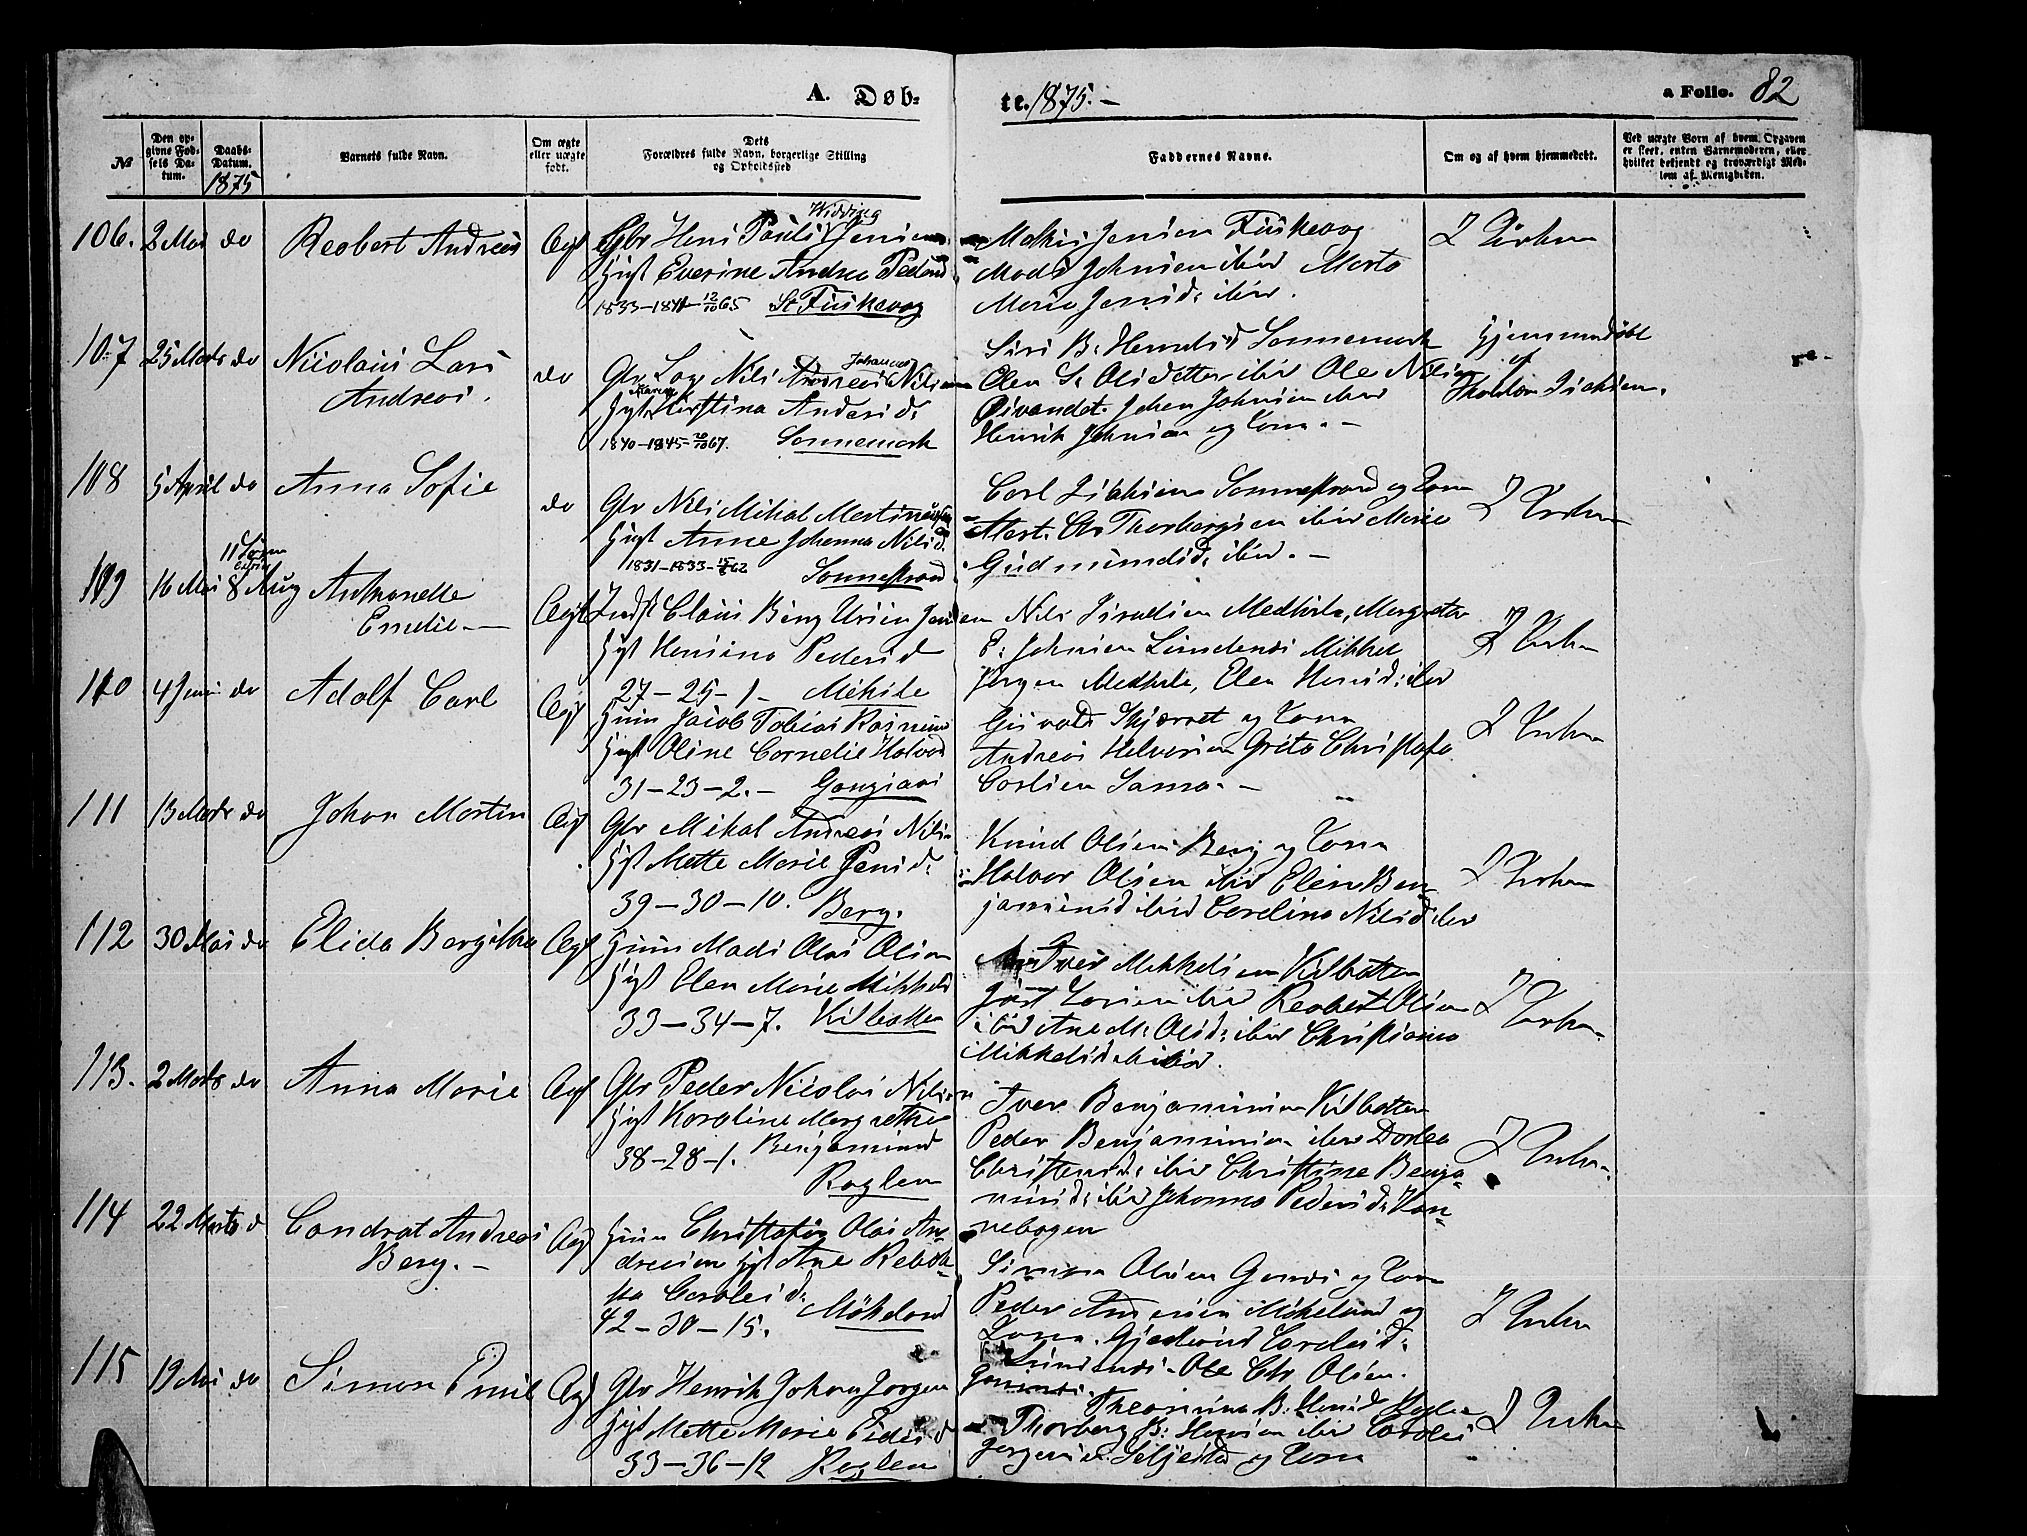 A. Døb=
te. 1875. –
a Folio. 82
№
Den op-
givne Fød-
sels Da-
tum.
Daabs-
Datum.
1875
Barnets fulde Navn.
Om ægte
eller uægte
født.
Dets
Forældres fulde Navn, borgerlige Stilling
og Opholdssted
Faddernes Navne.
Om og af hvem hjemmedøbt.
Ved uægte Børn af hvem Opgaven
er skeet, enten Barnemoderen, eller
hvilket bekjendt og troværdigt Med-
lem af Menigheden.
106. 2 Mai do Reobert Andreas Ægt Gbr Hens Paulis Widding Jensen
Hust Everine Andrea Pedersd
1833–1841– 12/10 65 St Fiskevog
Mathis Jensen Fiskevog
Mads Johnsen ibid Marta
Maria Jensd: ibid.
I Kirken
107 25 Marts do Nicolais Lars
Andreas.
do Gbr Lars Nils Andreas Johannes Nilsen
Hust Maren Kirstina Andersd:
1840–1845– 20/10 67. Sonnemark
Siri B: Henriksd Sonnemark
Elen S: Olsdatter ibid Ole Nilsen
Øivandet. Johan Johnsen ibid
Henrik Johnsen og Kone. –
Hjemmedøbt
af
108 5 April do Anna Sofie do Gbr Nils Mikal Martinussen
Hust Anne Johanna Nilsd.
1831–1833– 62 Sonnestrand
Carl Isaksen Sonnestrand og Kone
Mart. Chr Thorbergsen ibid Marie
Gudmundsd: ibid. –
I Kirken
109 16 Mai 8 Aug Anthonette
Emelie. –
Ægt Indst Claus Bing Ursin Jensen
Hust Hensina Pedersd
27–25–1– Mehile
Nils Israelsen Medhile, Margrete
E: Johnsen Lundenes Mikkel
Jørgen Medhile, Elen Hansd: ibid
I Kirken
110 4 Juni do Adolf Carl Ægt Huus Jacob Tobias Rasmus
Hust Oline Cornelie Halvors
31–23–2. – Gangsaas
Andreas Halvorsen Grete Christofa
Carlsen Sama. –
I Kirken
111 13 Marts do Johan Martin Ægt Gbr Mikal Andreas Nilsen
Hust Mette Marie Jensd:
39–30–10. Berg.
Knud Olsen Berg og Kone
Halvor Olsen ibid Elen Ben-
jaminsd ibid Caroline Nilsd ibid
I Kirken
112 30 Mai do Elida Bergitha Ægt Huus Mads Olai Olsen
Hust Elen Marie Mikkelsd
33–34–7. Kilbotten
Iver Mikkelsen Kilbotten
Larsen ibid Reobert Olsen
ibid Ane M: Olsd: ibid Christiane
Mikkelsd ibid.
I Kirken.
113. 2 Marts do Anna Marie Ægt Gbr Peder Nicolai Nilsen
Hust Karoline Margrethe
38–28–1. Benjaminsd
Røglen
Iver Benjaminsen Kilbotten
Peder Benjaminsen ibid Dortea
Christensd: ibid Christine Benja-
minsd: ibid Johanna Pedersd: Kan-
nebogen
I Kirken.
114 22 Marts do Condrat Andreas
Berg. –
Ægt Huus Christofer Olai An-
dresen Hust Ane Rebek-
ka Carolisd:
42–30–15. Møkeland
Simon Olsen Gands og Kone
Peder Andersen Møkeland og
Kone. Gjertrud Carolisd:
Lundenes. Ole Chr Olsen.
I Kirken
115 19 Mai do Simon Emil Ægt Gbr Henrik Johan Jørgen
Hust Mette Marie Pedersd
33–36–12 Røglen
Thorberg B: Hansen ibid Carolei
Jørgensen Seljestad og Kone
I Kirken